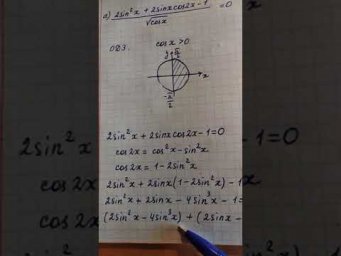 а) (2sin²x + 2sinxcos2x - 1)/√cosx = 0
ОДЗ. cosx > 0
y π/2
x
-π/2
2sin²x + 2sinxcos2x - 1 = 0
cos2x = cos²x - sin²x
cos2x = 1 - 2sin²x
2sin²x + 2sinx(1 - 2sin²x) - 1
2sin²x + 2sinx - 4sin³x - 1 =
(2sin²x - 4sin³x) + (2sinx -